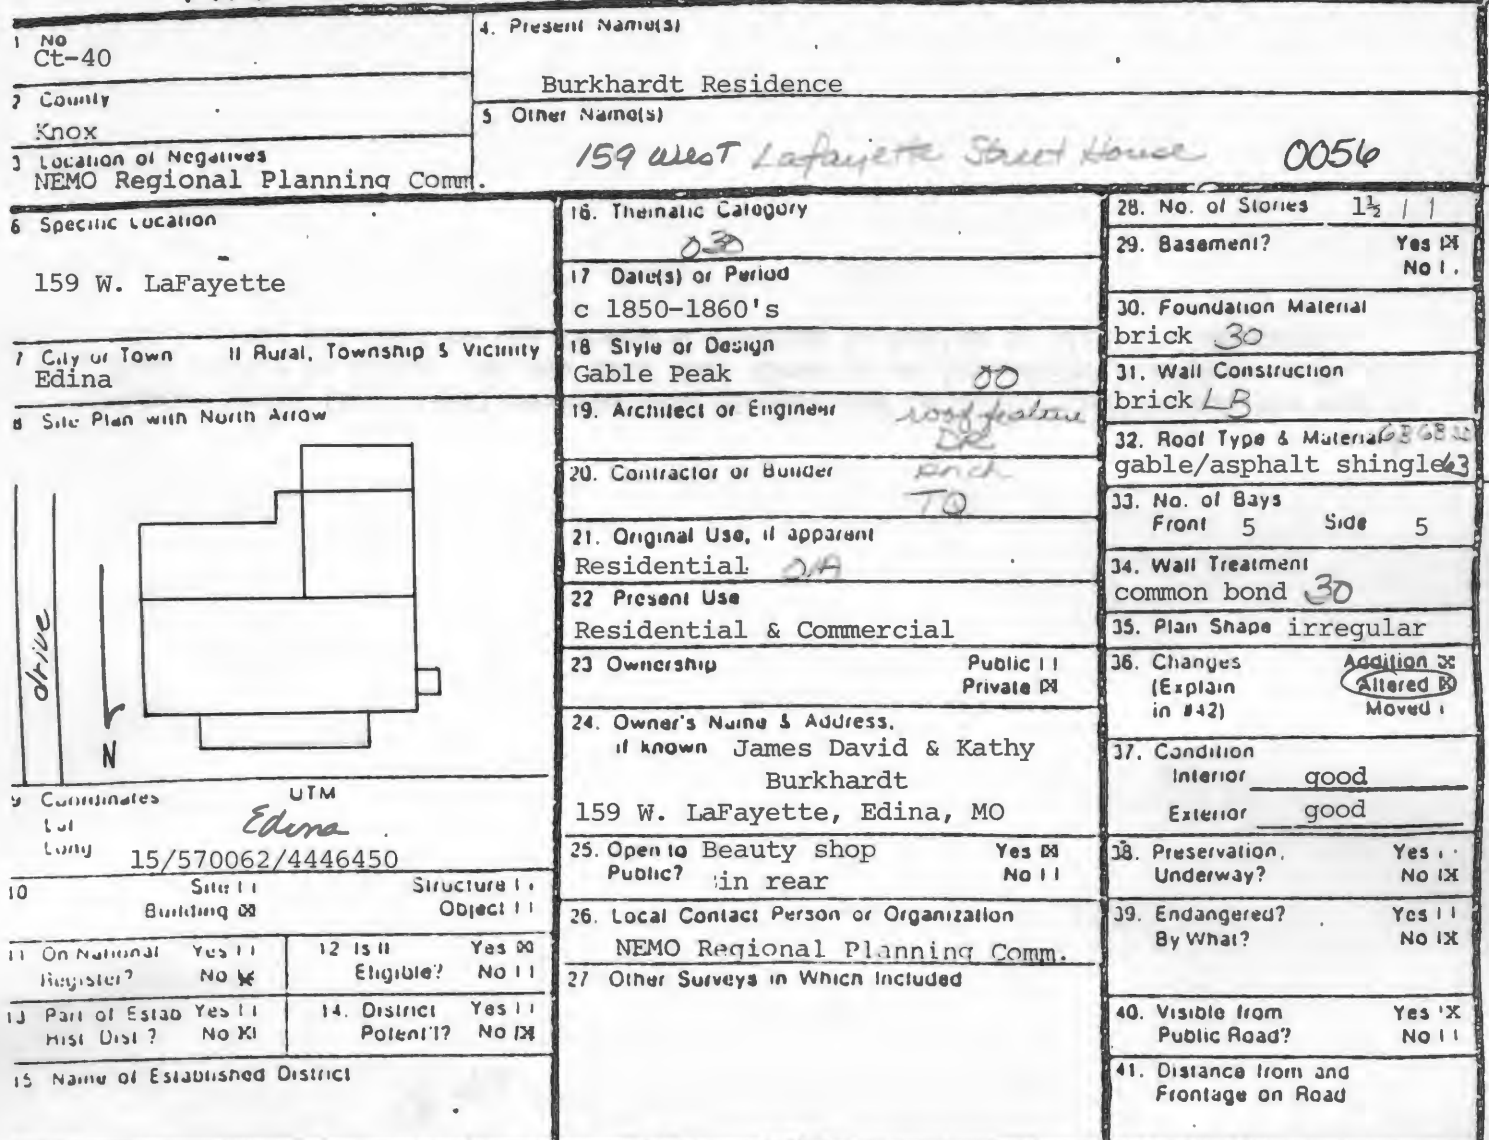 1 No
Ct-40
2 County
Knox
3 Location of Negatives
NEMO Regional Planning Comm.
4. Present Name(s)
Burkhardt Residence
5 Other Name(s)
159 West Lafayette Street House 0056
6 Specific Location
159 W. LaFayette
7 City or Town If Rural, Township & Vicinity
Edina
8 Site Plan with North Arrow
drive
N
9 Coordinates UTM
Lat
Long
Edina
15/570062/4446450
10 Site [ ] Structure [ ]
Building [X] Object [ ]
11 On National Register? Yes [ ] No [X]
12 Is It Eligible? Yes [X] No [ ]
13 Part of Estab Hist Dist? Yes [ ] No [X]
14. District Potent'l? Yes [ ] No [X]
15 Name of Established District
16. Thematic Category
030
17 Date(s) or Period
c 1850-1860's
18 Style or Design
Gable Peak 00
19. Architect or Engineer
roof feature
DR
20. Contractor or Builder
Porch
TQ
21. Original Use, if apparent
Residential 01A
22 Present Use
Residential & Commercial
23 Ownership Public [ ]
Private [X]
24. Owner's Name & Address,
if known James David & Kathy
Burkhardt
159 W. LaFayette, Edina, MO
25. Open to Public? Beauty shop in rear Yes [X] No [ ]
26. Local Contact Person or Organization
NEMO Regional Planning Comm.
27 Other Surveys in Which Included
28. No. of Stories 1½
29. Basement? Yes [X]
No [ ]
30. Foundation Material
brick 30
31. Wall Construction
brick LB
32. Roof Type & Material
gable/asphalt shingle 63
33. No. of Bays
Front 5 Side 5
34. Wall Treatment
common bond 30
35. Plan Shape irregular
36. Changes (Explain in #42) Addition [X]
Altered [X]
Moved [ ]
37. Condition
Interior good
Exterior good
38. Preservation Underway? Yes [ ]
No [X]
39. Endangered? Yes [ ]
By What? No [X]
40. Visible from Public Road? Yes [X]
No [ ]
41. Distance from and
Frontage on Road